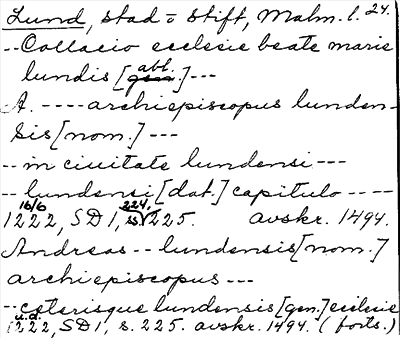 Lund, stad o stift, Malm. l. 24.
-- Collacio ecclesie beate marie
lundis [abl.] ---
A. ---- archiepiscopus lunden-
sis [nom.] ---
-- in ciuitate lundensi ---
-- lundensi [dat.] capitulo -----
16/6 1222, SD 1, s. 224, 225. avskr. 1494.
Andreas -- lundensis [nom.]
archiepiscopus ---
-- ceterisque lundensis [gen.] ecclesie
u.d. 1222, SD 1, s. 225. avskr. 1494. (forts.)